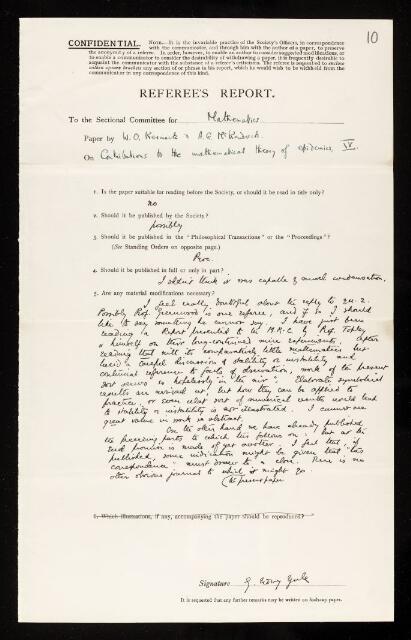 10
CONFIDENTIAL. NOTE.—It is the invariable practice of the Society's Officers, in correspondence
with the communicator, and through him with the author of a paper, to preserve
the anonymity of a referee. In order, however, to enable an author to consider suggested modifications, or
to enable a communicator to consider the desirability of withdrawing a paper, it is frequently desirable to
acquaint the communicator with the substance of a referee's criticisms. The referee is requested to
any section of or phrase in his report, which he would wish to be withheld from the
communicator in any correspondence of this kind.
REFEREE'S REPORT.
To the Sectional Committee for Mathematics
Paper by W. O. Kermack & A. G. McKendrick
On Contributions to the mathematical theory of epidemics IV.
1. Is the paper suitable for reading before the Society, or should it be read in title only?
no
2. Should it be published by the Society?
possibly
3. Should it be published in the "Philosophical Transactions" or the "Proceedings"?
(See Standing Orders on opposite page.)
Proc.
4. Should it be published in full or only in part?
I shdn't think it was capable of much condensation.
5. Are any material modifications necessary?
I feel really doubtful about the reply to qu. 2.
Possibly Prof. Greenwood is one referee, and if so I should
like to say something he cannot say. I have just been
reading a Report presented to the M.R.C. by Prof. Topley
& himself on their long-continued mice experiments. After
reading that with its comparatively little mathematics but
lucid & careful discussion of stability or instability and
continual reference to facts of observation, work of the present
sort seems so hopelessly "in the air". Elaborate symbolical
results are arrived at, but how they can be applied to
practice, or even what sort of numerical events would lead
to stability or instability is not illustrated. I cannot see
great value in work so abstract.
On the other hand we have already published
the preceding parts to which this follows on: but at the
end promise is made of yet another. I feel that, if
published, some indication might be given that "this
correspondence" must draw to a close. There is no
other obvious journal to which it might go.
(the present paper
6. Which illustrations, if any, accompanying the paper should be reproduced?
Signature G. Udny Yule
It is requested that any further remarks may be written on foolscap paper.